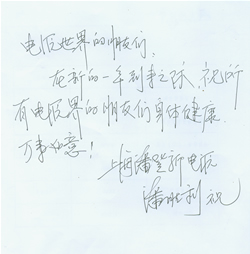 电源世界的朋友们,
在新的一年到来之际,祝所
有电源界的朋友们身体健康
万事如意!
上海潘登新电源
潘胜利 祝